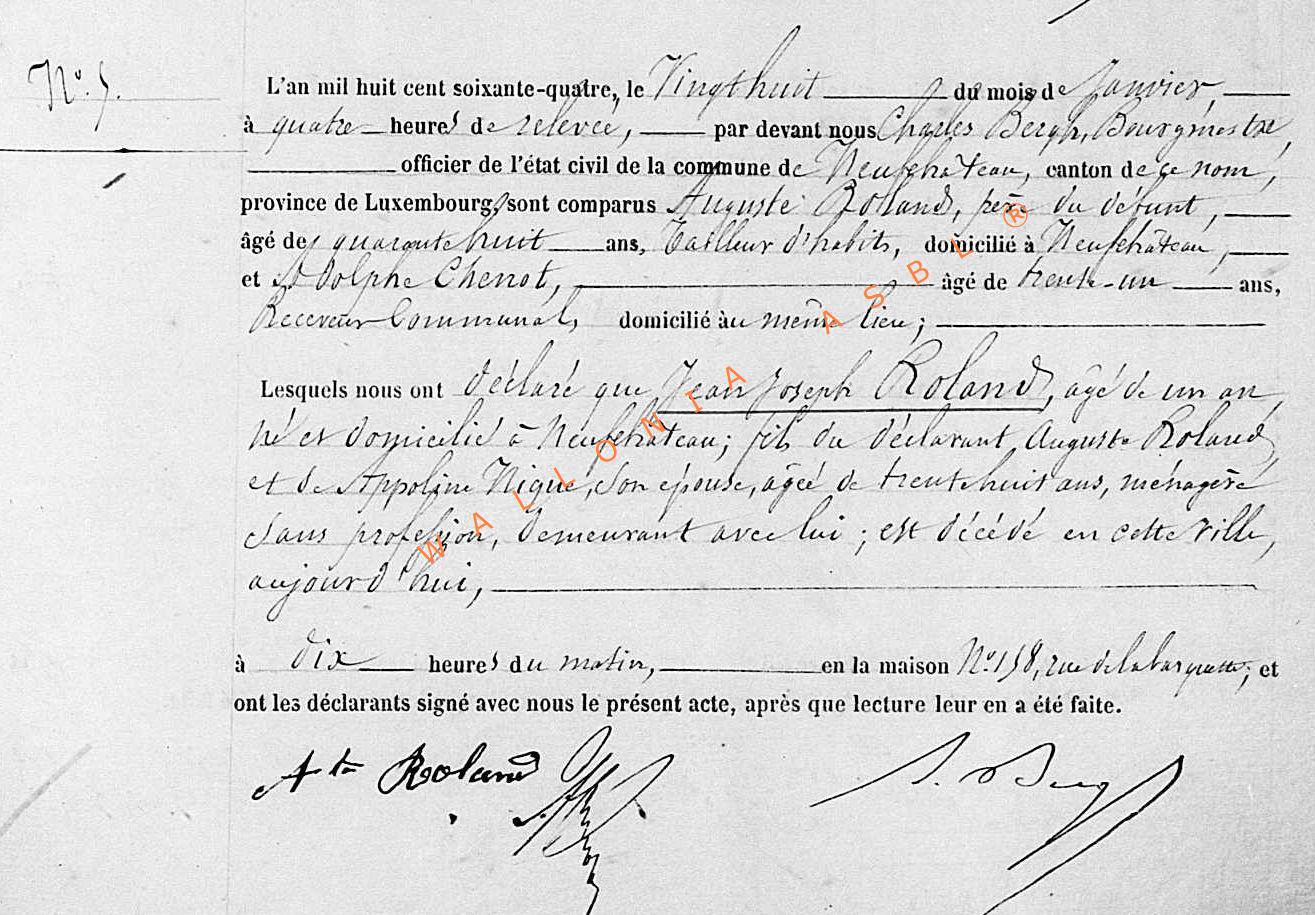 N.° 5.
L'an mil huit cent soixante-quatre, le Vingt huit du mois de Janvier,
à quatre heures de relevée, par devant nous Charles Bergh, Bourgmestre,
officier de l'état civil de la commune de Neufchâteau, canton de ce nom,
province de Luxembourg, sont comparus Auguste Roland, père du défunt,
âgé de quarante huit ans, Tailleur d'habits, domicilié à Neufchâteau,
et Adolphe Chenot, âgé de trente-un ans,
Receveur Communal, domicilié au même lieu;
Lesquels nous ont déclaré que Jean Joseph Roland, âgé de un an,
né et domicilié à Neufchâteau; fils du déclarant Auguste Roland,
et de Appoline Nique, son épouse, âgée de trente huit ans, ménagère
sans profession, demeurant avec lui; est décédé en cette ville,
aujourd'hui,
à dix heures du matin, en la maison N.° 158, rue de la ; et
ont les déclarants signé avec nous le présent acte, après que lecture leur en a été faite.
Ate Roland
WALLONIA ASBL ®